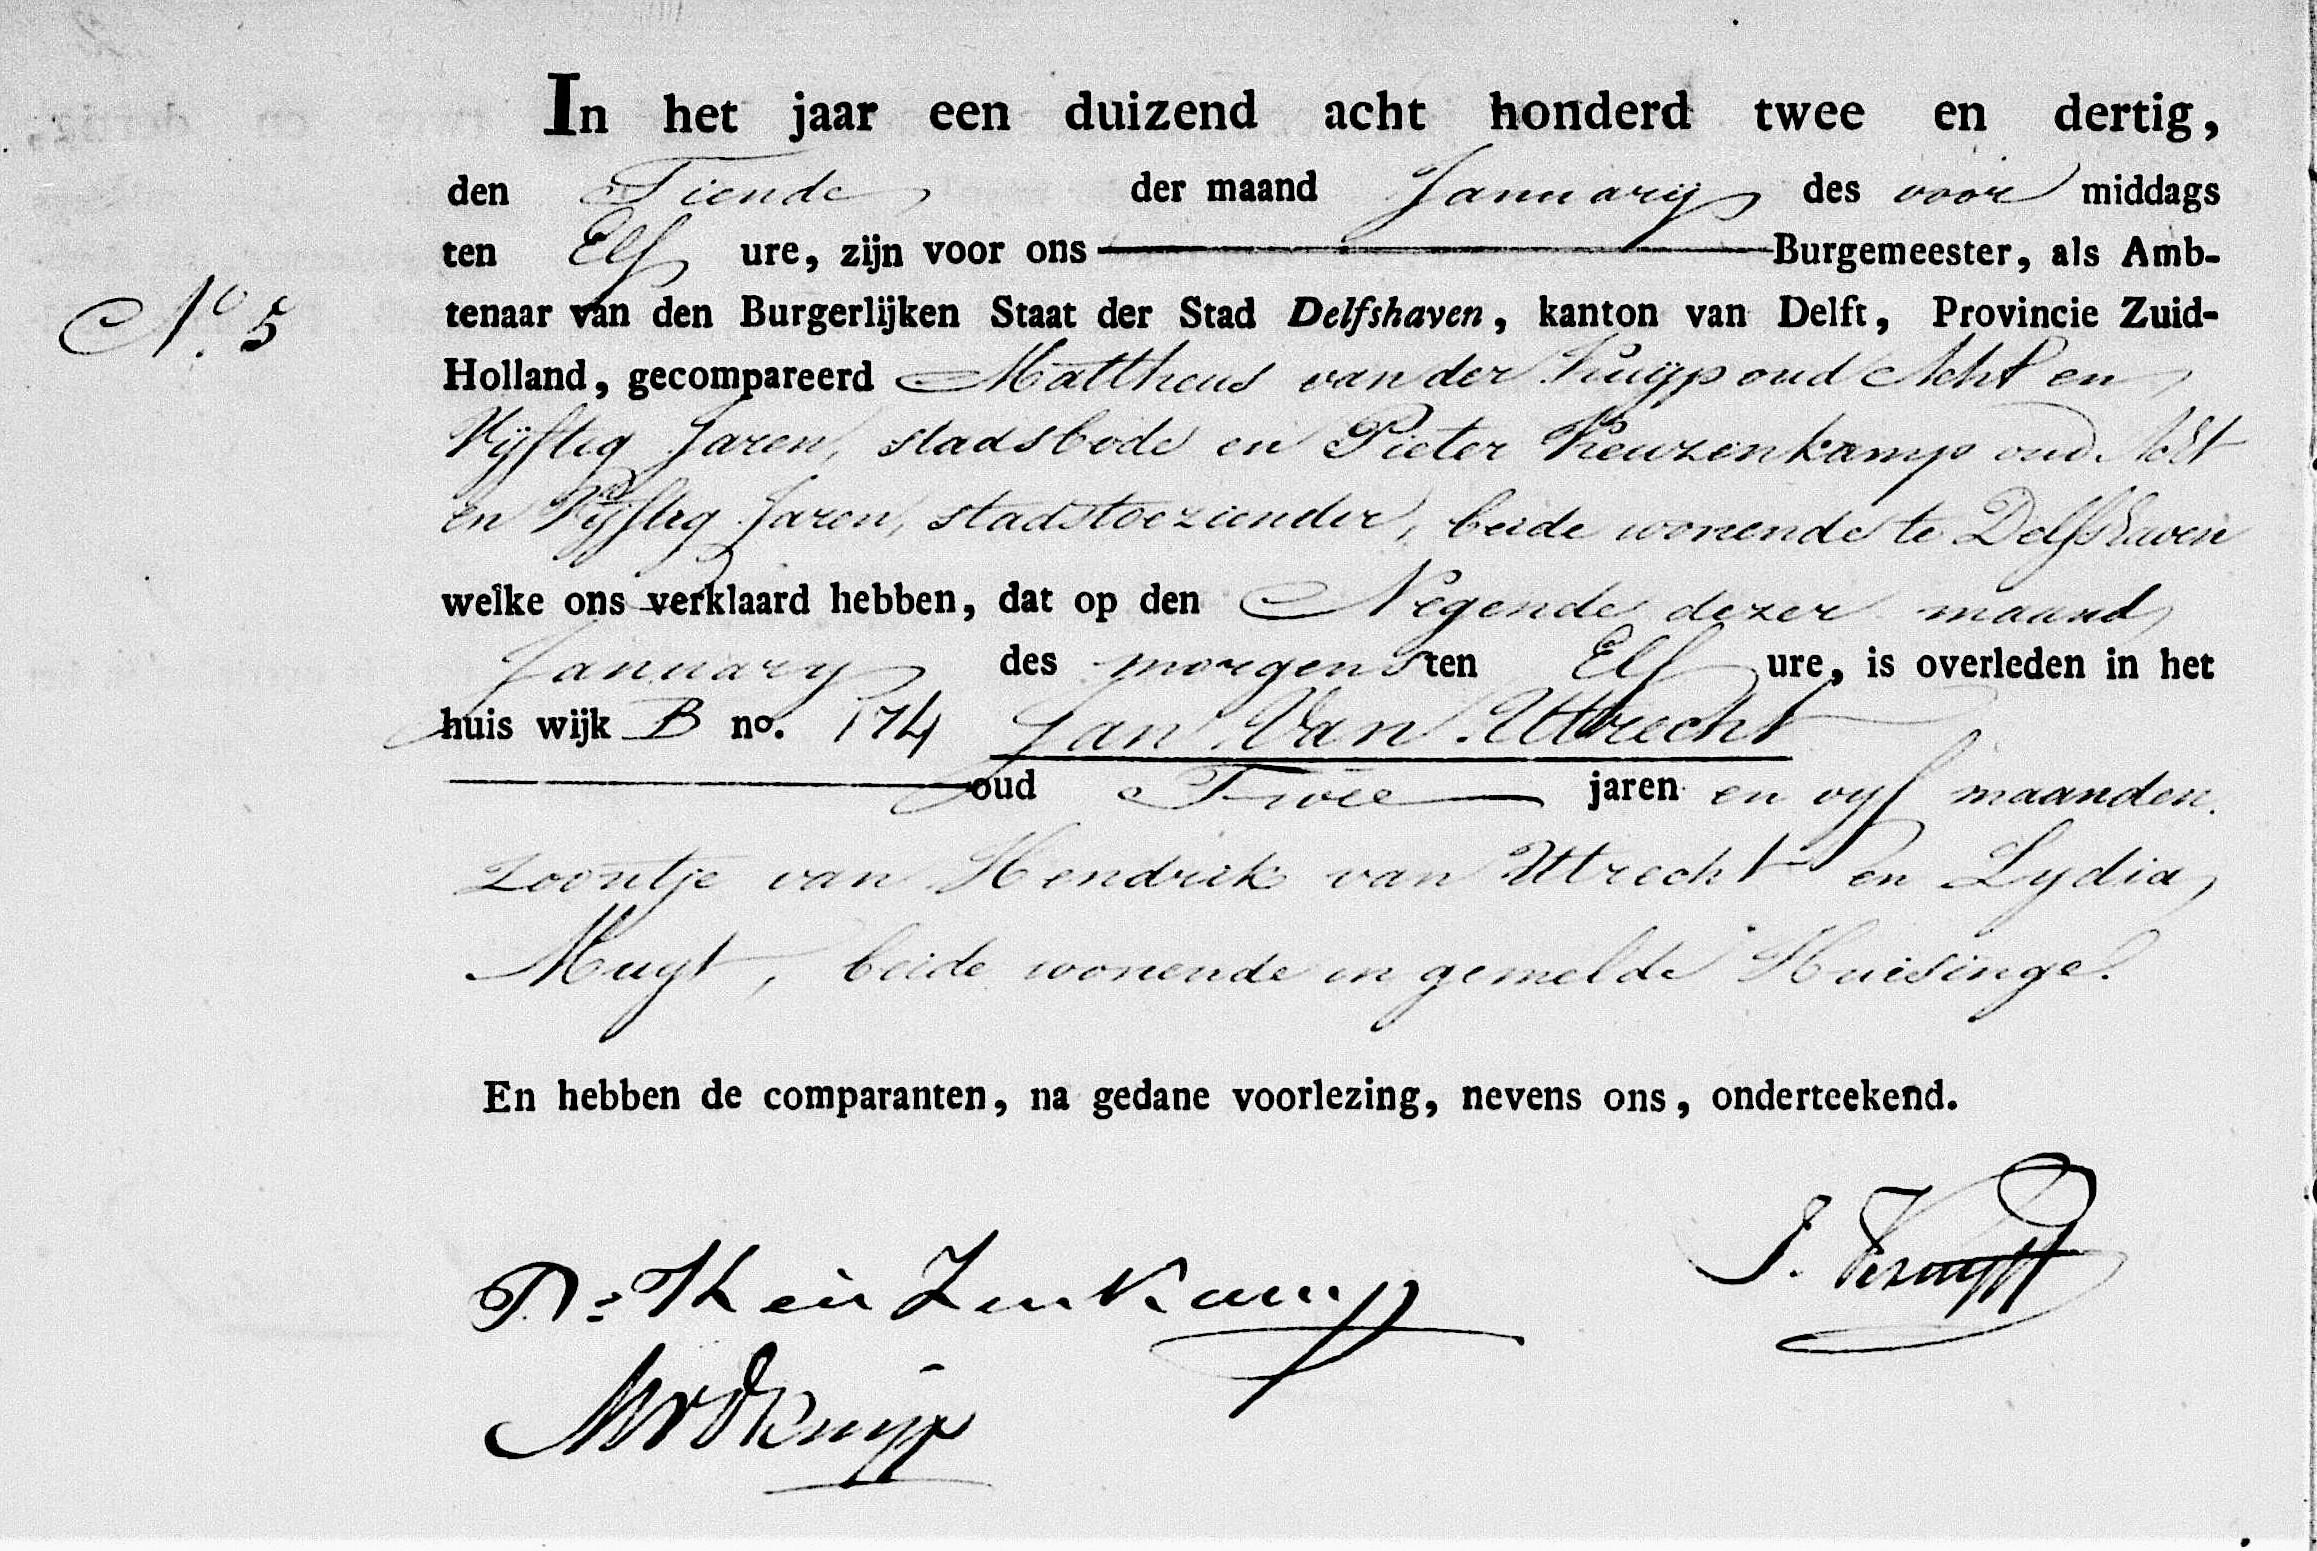 In het jaar een duizend acht honderd twee en dertig,
den Tiende der maand January des voor middags
ten Elf ure, zijn voor ons Burgemeester, als Amb-
tenaar van den Burgerlijken Staat der Stad Delfshaven, kanton van Delft, Provincie Zuid-
No. 5
Holland, gecompareerd Mattheus van der Kuijp oud Acht en
Vijftig Jaren, stadsbode en Pieter Keuzenkamp oud Acht
en Vijftig Jaren, stadstoeziender, beide wonende te Delfshaven
welke ons verklaard hebben, dat op den Negende dezer maand
January des morgens ten Elf ure, is overleden in het
huis wijk B no. 174 Jan Van Uttrecht
oud Twee jaren en vyf maanden.
Zoontje van Hendrik van Uttrecht en Lydia
Muyt, beide wonende in gemelde Huisinge.
En hebben de comparanten, na gedane voorlezing, nevens ons, onderteekend.
J.
P: Keuzenkamp
MvdKuijp